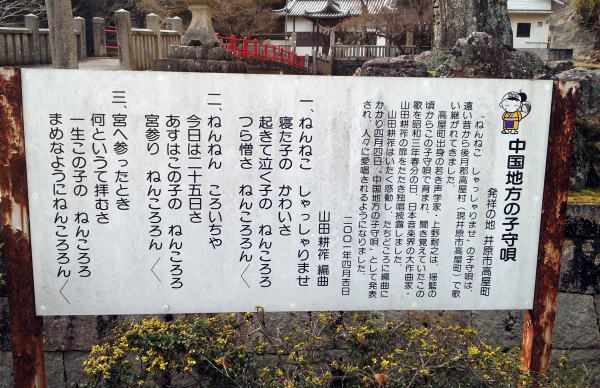 中国地方の子守唄
発祥の地 井原市高屋町
〝ねんねこ しゃっしゃりませ〟の子守唄は、
遠い昔から後月郡高屋村(現井原市高屋町)で歌
い継がれてきました。
高屋町出身の若き声楽家・上野耐之は、揺籃の
頃からこの子守唄で育まれ、聞き覚えていたこの
歌を昭和三年春分の日、日本音楽界の大作曲家・
山田耕筰の扉をたたき独唱披露しました。
山田耕筰はいたく感動し、たちどころに編曲に
かかり四月四日〝中国地方の子守唄〟として発表
され、人々に愛唱されるようになりました。
二〇〇一年四月吉日
山田耕筰 編曲
一、ねんねこ しゃっしゃりませ
寝た子の かわいさ
起きて泣く子の ねんころろ
つら憎さ ねんころろん 〱
二、ねんねん ころいちや
今日は二十五日さ
あすはこの子の ねんころろ
宮参り ねんころろん 〱
三、宮へ参ったとき
何というて拝むさ
一生この子の ねんころろ
まめなようにねんころろん 〱